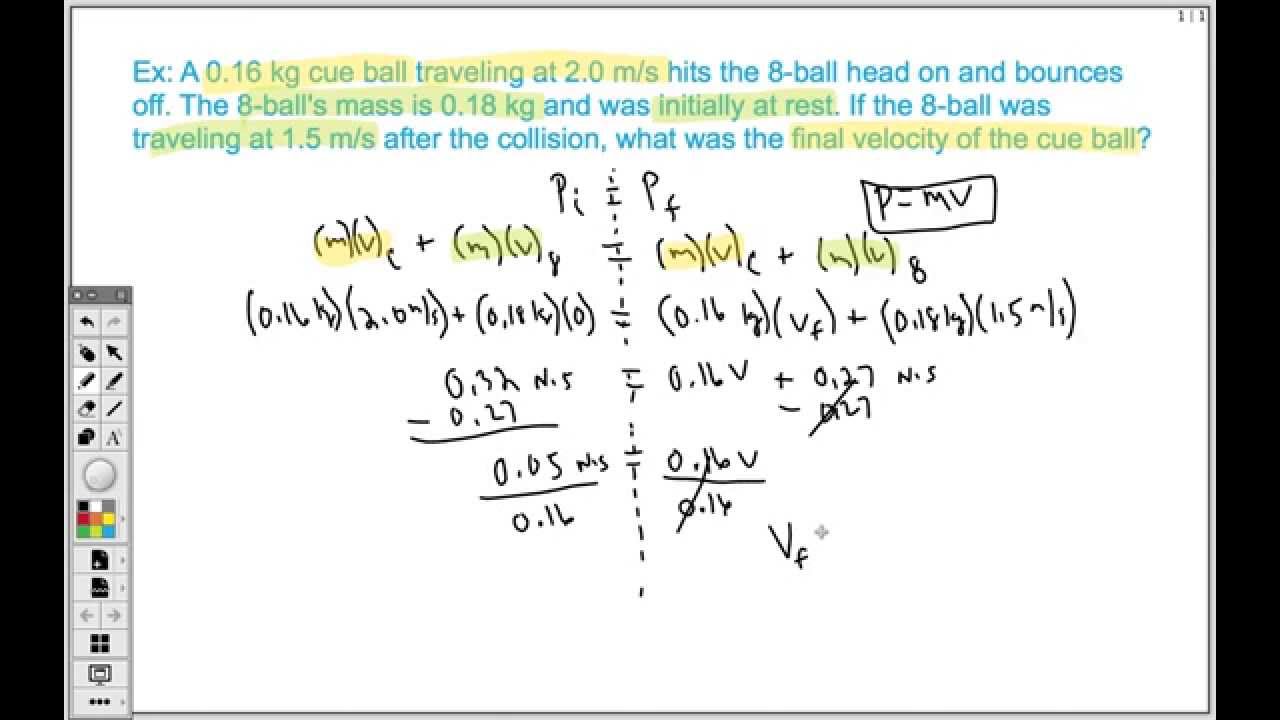 1 | 1
Ex: A 0.16 kg cue ball traveling at 2.0 m/s hits the 8-ball head on and bounces
off. The 8-ball's mass is 0.18 kg and was initially at rest. If the 8-ball was
traveling at 1.5 m/s after the collision, what was the final velocity of the cue ball?
Pi = Pf
P = mv
(m)(v)c + (m)(v)8 = (m)(v)c + (m)(v)8
(0.16 kg)(2.0 m/s) + (0.18 kg)(0) = (0.16 kg)(vf) + (0.18 kg)(1.5 m/s)
0.32 N·s = 0.16 V + 0.27 N·s
- 0.27 - 0.27
0.05 N·s = 0.16 V
0.16 0.16
Vf
A